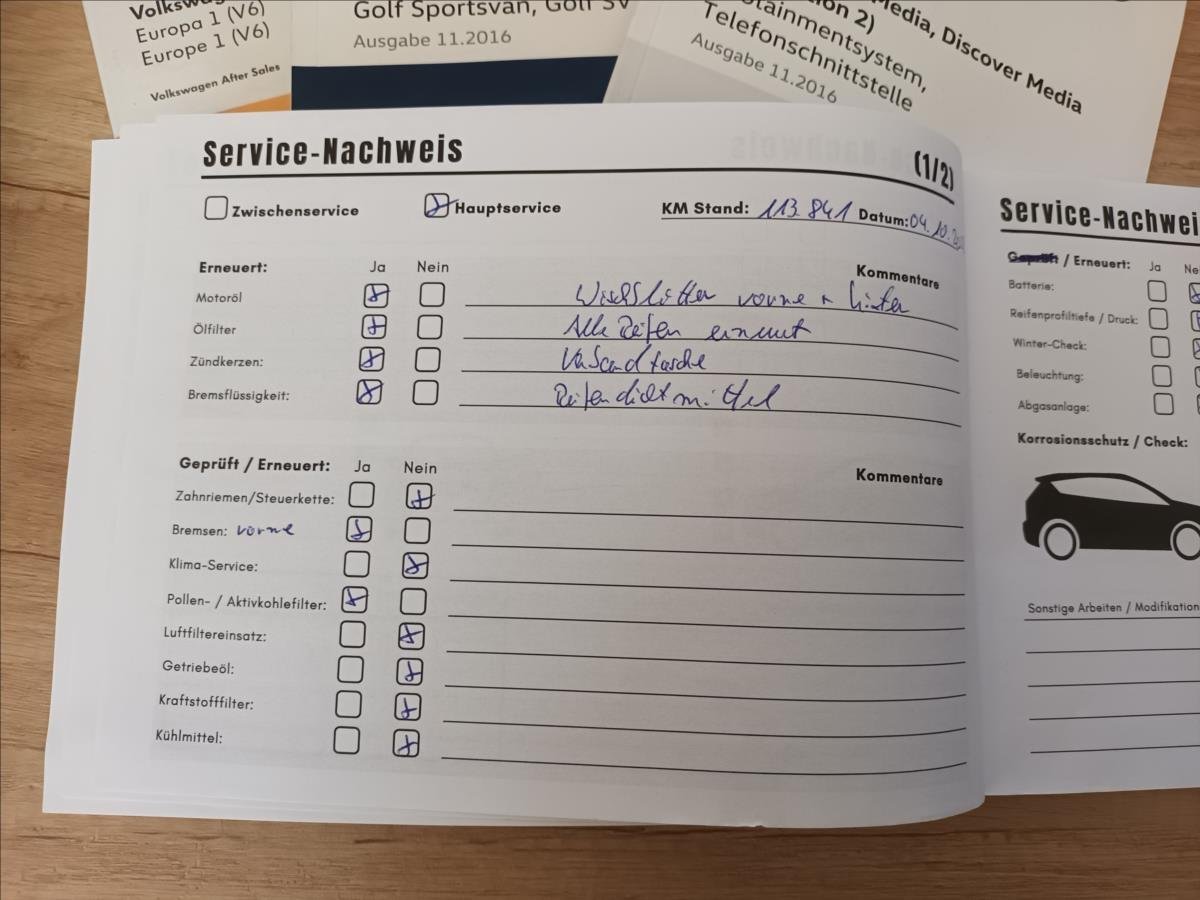 Volkswag
Europa 1 (V6)
Europe 1 (V6)
Volkswagen After Sales
Golf Sportsvan, Golf SV
Ausgabe 11.2016
Media, Discover Media
on 2)
tainmentsystem,
Telefonschnittstelle
Ausgabe 11.2016
Service-Nachweis
(1/2)
Zwischenservice Hauptservice KM Stand: 113.841 Datum: 04.10.
Erneuert: Ja Nein Kommentare
Motoröl vorne + hinten
Ölfilter Alle Reifen erneuert
Zündkerzen:
Bremsflüssigkeit: Reifendichtmittel
Geprüft / Erneuert: Ja Nein Kommentare
Zahnriemen/Steuerkette:
Bremsen: vorne
Klima-Service:
Pollen- / Aktivkohlefilter:
Luftfiltereinsatz:
Getriebeöl:
Kraftstofffilter:
Kühlmittel:
Service-Nachwei
Geprüft / Erneuert: Ja Ne
Batterie:
Reifenprofiltiefe / Druck:
Winter-Check:
Beleuchtung:
Abgasanlage:
Korrosionsschutz / Check:
Sonstige Arbeiten / Modifikation